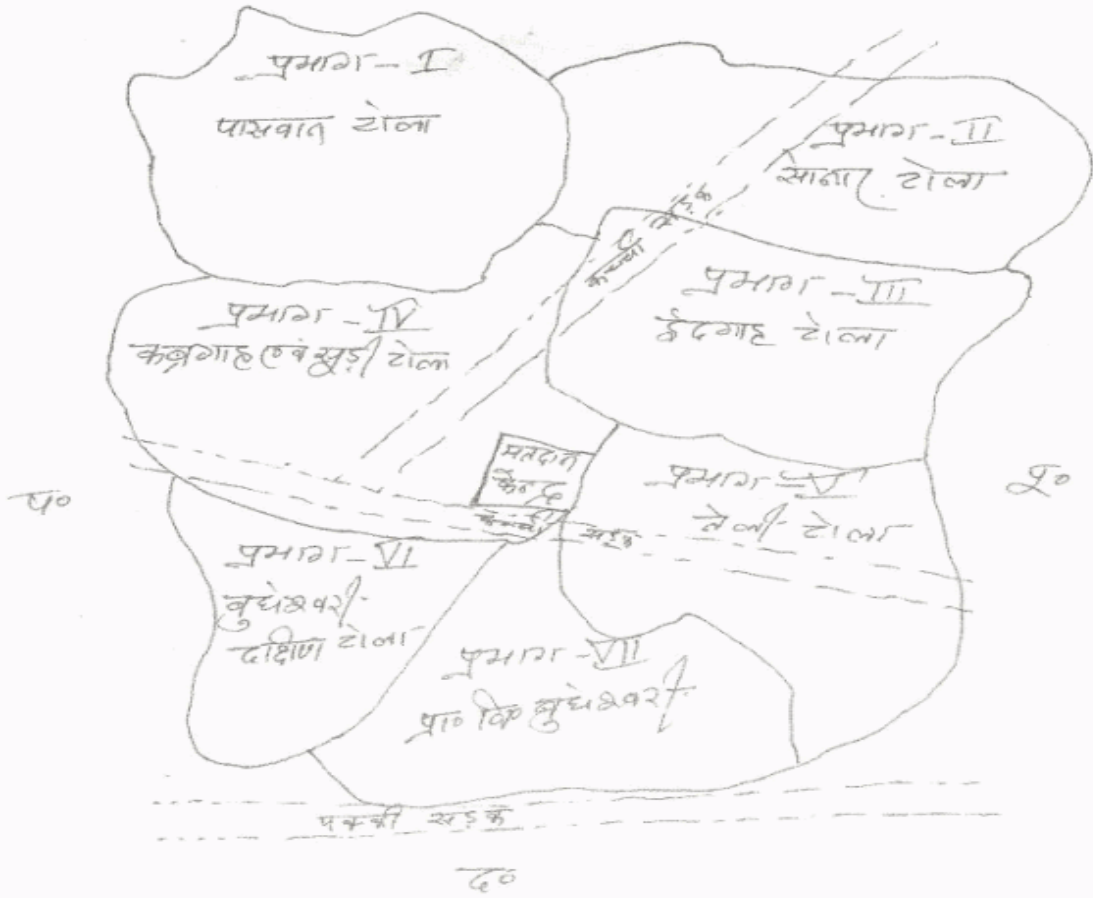 प्रभाग - I
पासवान टोला
प्रभाग - II
सोनार टोला
कच्ची सड़क
प्रभाग - III
ईदगाह टोला
प्रभाग - IV
कब्रगाह एवं सूड़ी टोला
मतदान
केन्द्र
प्रभाग - V
तेली टोला
प०
पू०
कच्ची सड़क
प्रभाग - VI
बुधेश्वरी
दक्षिण टोला
प्रभाग - VII
प्रा० वि० बुधेश्वरी
पक्की सड़क
द०